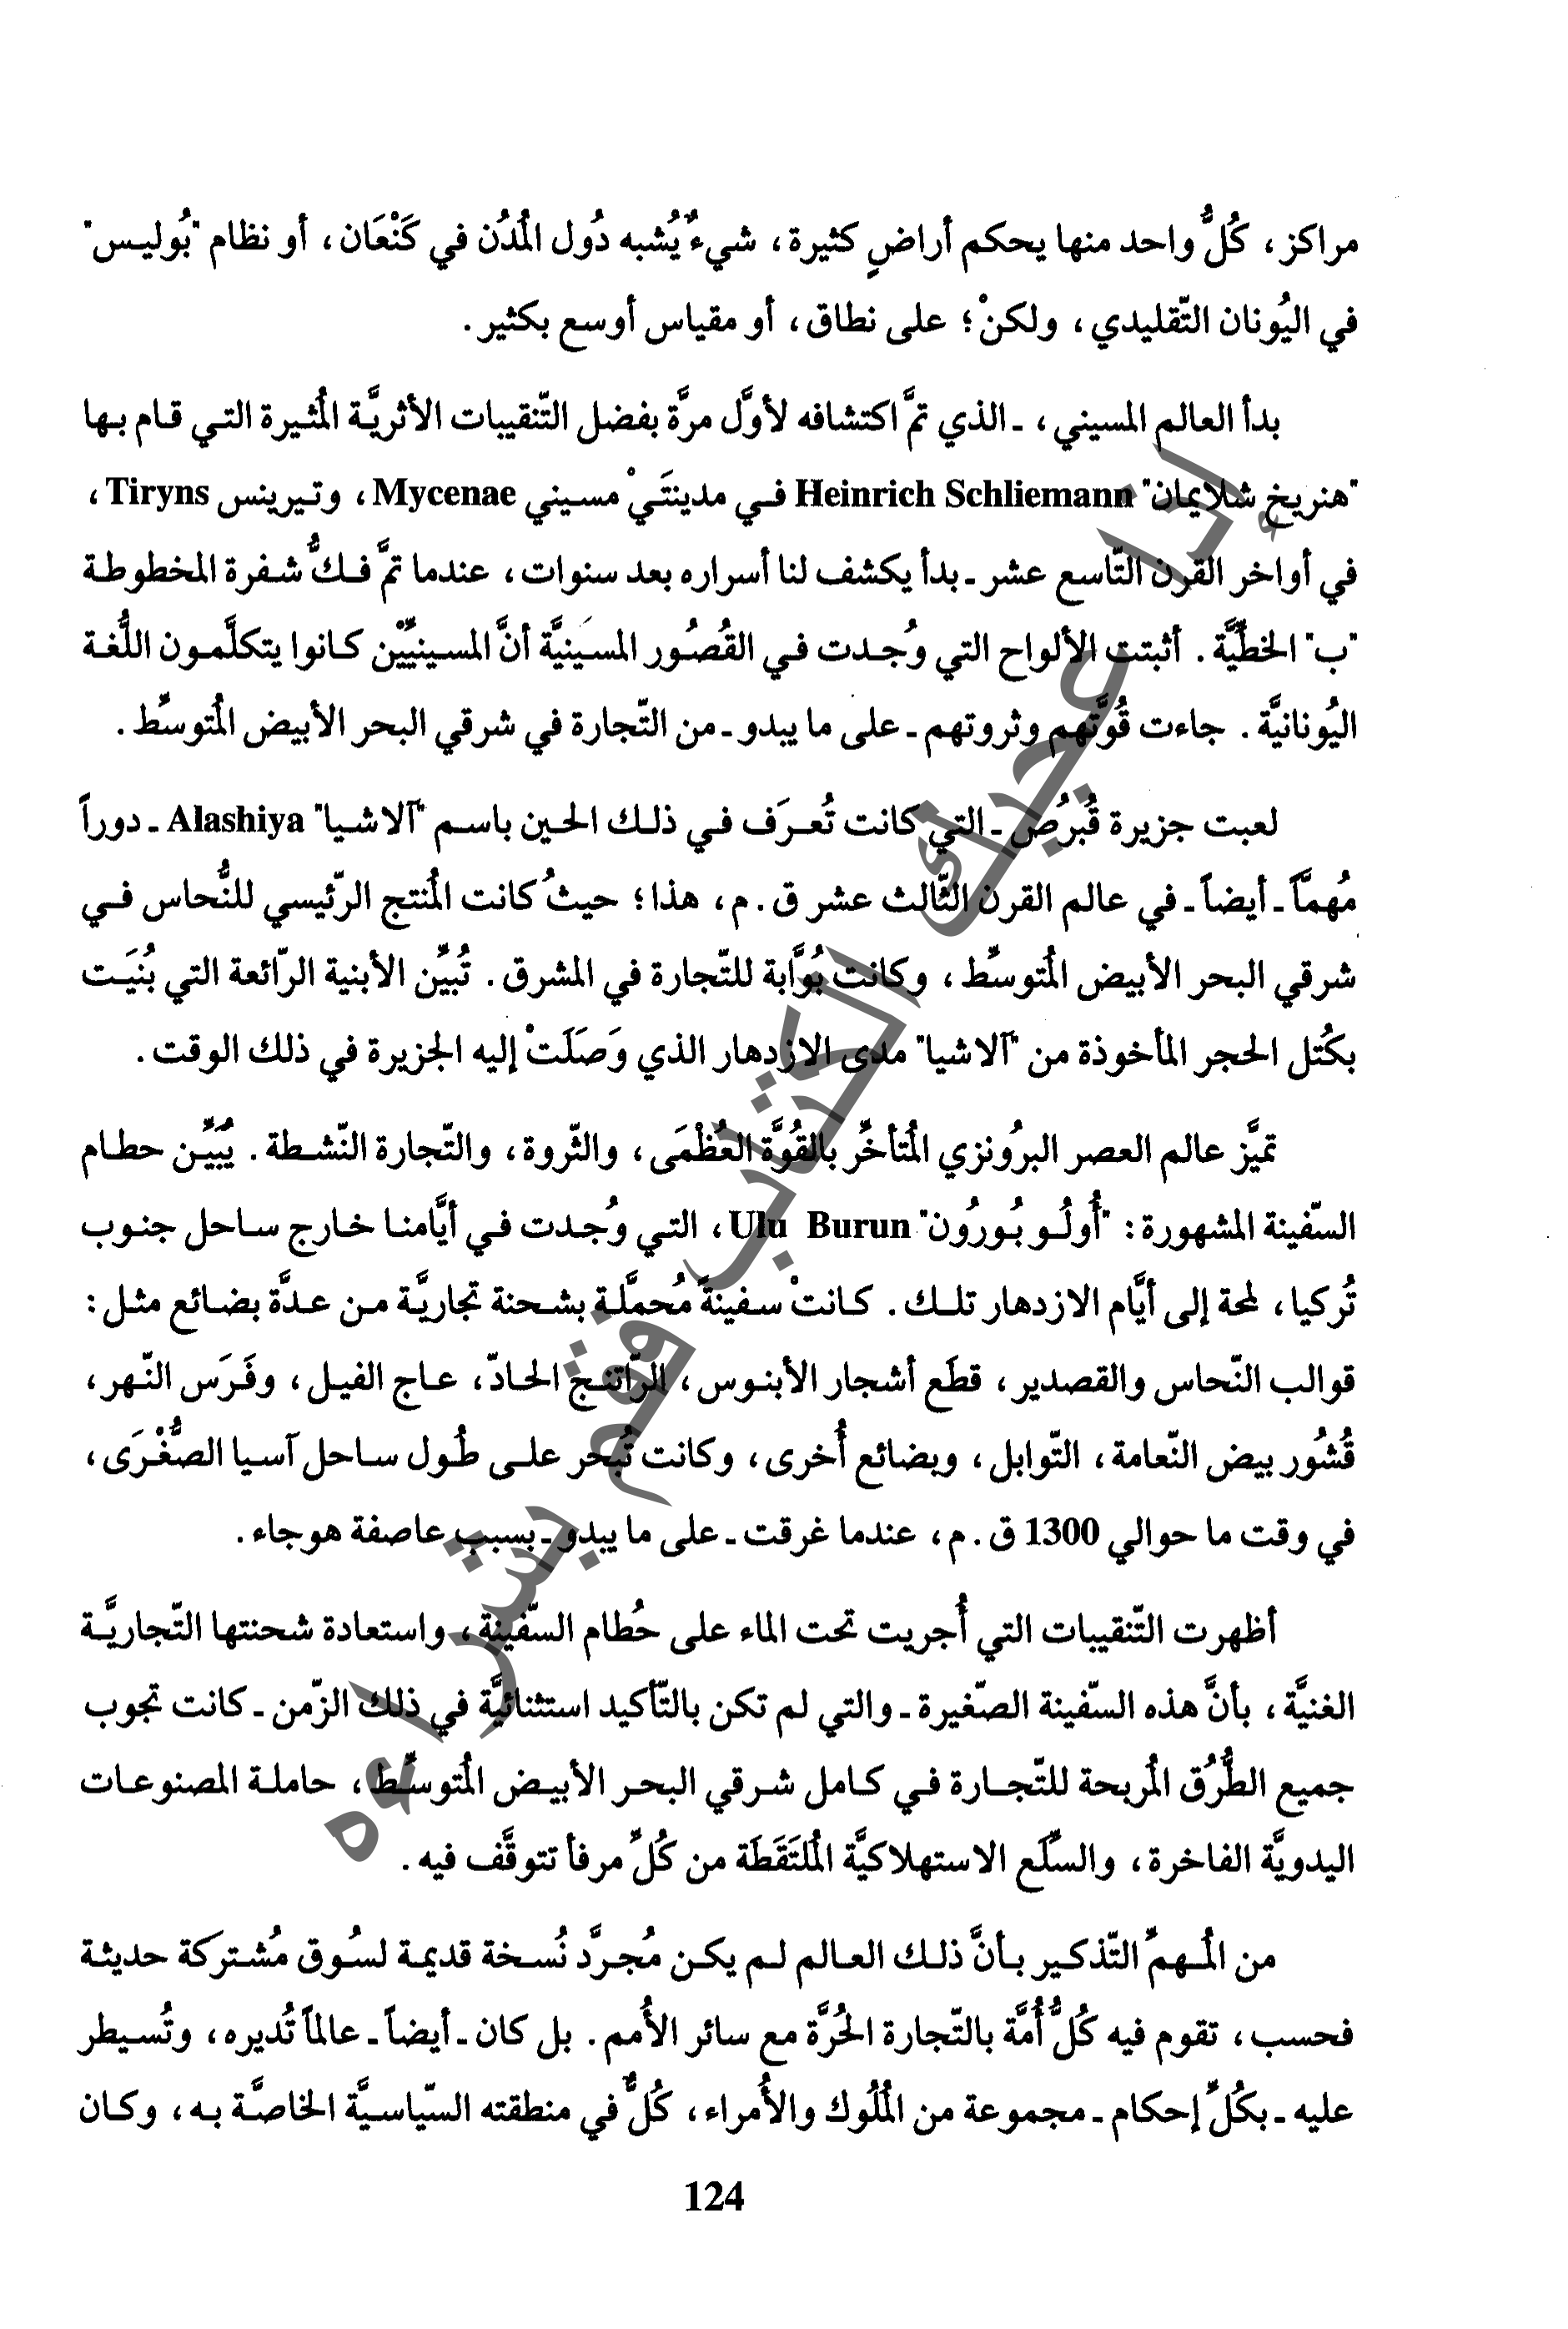 مراكز، كُلُّ واحد منها يحكم أراضٍ كثيرة، شيءٌ يُشبه دُول المُدُن في كَنْعَان، أو نظام "بُوليس"
في اليُونان التّقليدي، ولكنْ؛ على نطاق، أو مقياس أوسع بكثير.
بدأ العالم المسيني، ـ الذي تمَّ اكتشافه لأوَّل مرَّة بفضل التّنقيبات الأثريَّة المُثيرة التي قام بها
"هنريخ شلايمان" Heinrich Schliemann في مدينتَيْ مسيني Mycenae، وتيرينس Tiryns،
في أواخر القرن التّاسع عشر ـ بدأ يكشف لنا أسراره بعد سنوات، عندما تمَّ فكُّ شفرة المخطوطة
"ب" الخطِّيَّة. أثبتت الألواح التي وُجدت في القُصُور المسَينيَّة أنَّ المسينيِّيْن كانوا يتكلَّمون اللُّغة
اليُونانيَّة. جاءت قُوَّتهم وثروتهم ـ على ما يبدو ـ من التّجارة في شرقي البحر الأبيض المُتوسِّط.
لعبت جزيرة قُبرُص ـ التي كانت تُعرَف في ذلك الحين باسم "آلاشيا" Alashiya ـ دوراً
مُهمَّاً ـ أيضاً ـ في عالم القرن الثّالث عشر ق.م، هذا؛ حيثُ كانت المُنتج الرّئيسي للنُّحاس في
شرقي البحر الأبيض المُتوسِّط، وكانت بُوَّابة للتّجارة في المشرق. تُبيِّن الأبنية الرّائعة التي بُنيَت
بكُتل الحجر المأخوذة من "آلاشيا" مدى الازدهار الذي وَصَلَتْ إليه الجزيرة في ذلك الوقت.
تميَّز عالم العصر البرُونزي المُتأخِّر بالقُوَّة العُظْمَى، والثّروة، والتّجارة النّشطة. يُبيِّن حطام
السّفينة المشهورة: "أُولُو بُورُون" Ulu Burun، التي وُجدت في أيَّامنا خارج ساحل جنوب
تُركيا، لمحة إلى أيَّام الازدهار تلك. كانتْ سفينةً مُحمَّلة بشحنة تجاريَّة من عدَّة بضائع مثل:
قوالب النّحاس والقصدير، قطَع أشجار الأبنوس، الرّاتنج الحادّ، عاج الفيل، وفَرَس النّهر،
قُشُور بيض النّعامة، التّوابل، وبضائع أُخرى، وكانت تُبحر على طُول ساحل آسيا الصُّغْرَى،
في وقت ما حوالي 1300 ق.م، عندما غرقت ـ على ما يبدو ـ بسبب عاصفة هوجاء.
أظهرت التّنقيبات التي أُجريت تحت الماء على حُطام السّفينة، واستعادة شحنتها التّجاريَّة
الغنيَّة، بأنَّ هذه السّفينة الصّغيرة ـ والتي لم تكن بالتّأكيد استثنائيَّة في ذلك الزّمن ـ كانت تجوب
جميع الطُّرُق المُربحة للتّجارة في كامل شرقي البحر الأبيض المُتوسِّط، حاملة المصنوعات
اليدويَّة الفاخرة، والسِّلَع الاستهلاكيَّة المُلتَقَطَة من كُلِّ مرفأ تتوقَّف فيه.
من المُهمِّ التّذكير بأنَّ ذلك العالم لم يكن مُجرَّد نُسخة قديمة لسُوق مُشتركة حديثة
فحسب، تقوم فيه كُلُّ أُمَّة بالتّجارة الحُرَّة مع سائر الأُمم. بل كان ـ أيضاً ـ عالماً تُديره، وتُسيطر
عليه ـ بكُلِّ إحكام ـ مجموعة من المُلُوك والأُمراء، كُلٌّ في منطقته السّياسيَّة الخاصَّة به، وكان
124
إذا أعجبك الكتاب فقم بشراءه